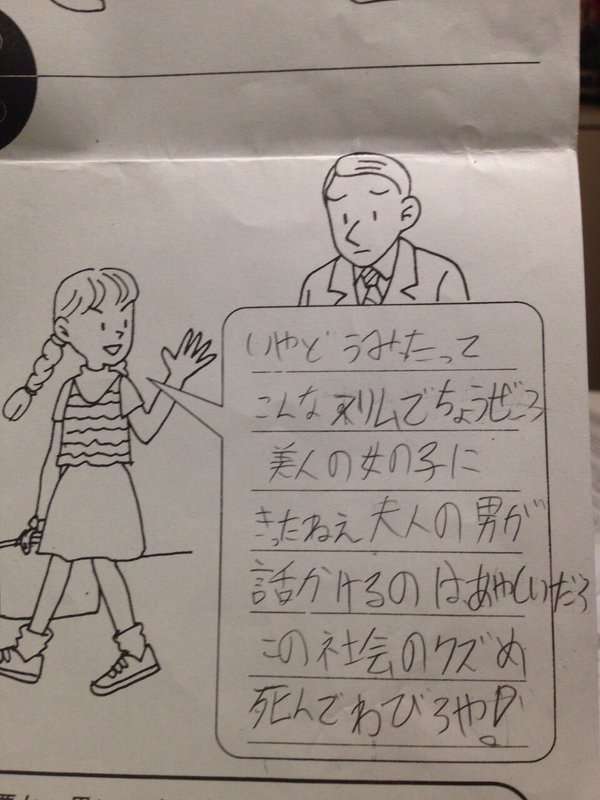 いやどうみたって
こんなスリムでちょうぜつ
美人の女の子に
きったねえ夫人の男が
話かけるのはあやしいだろ
この社会のクズめ
死んでわびろや!